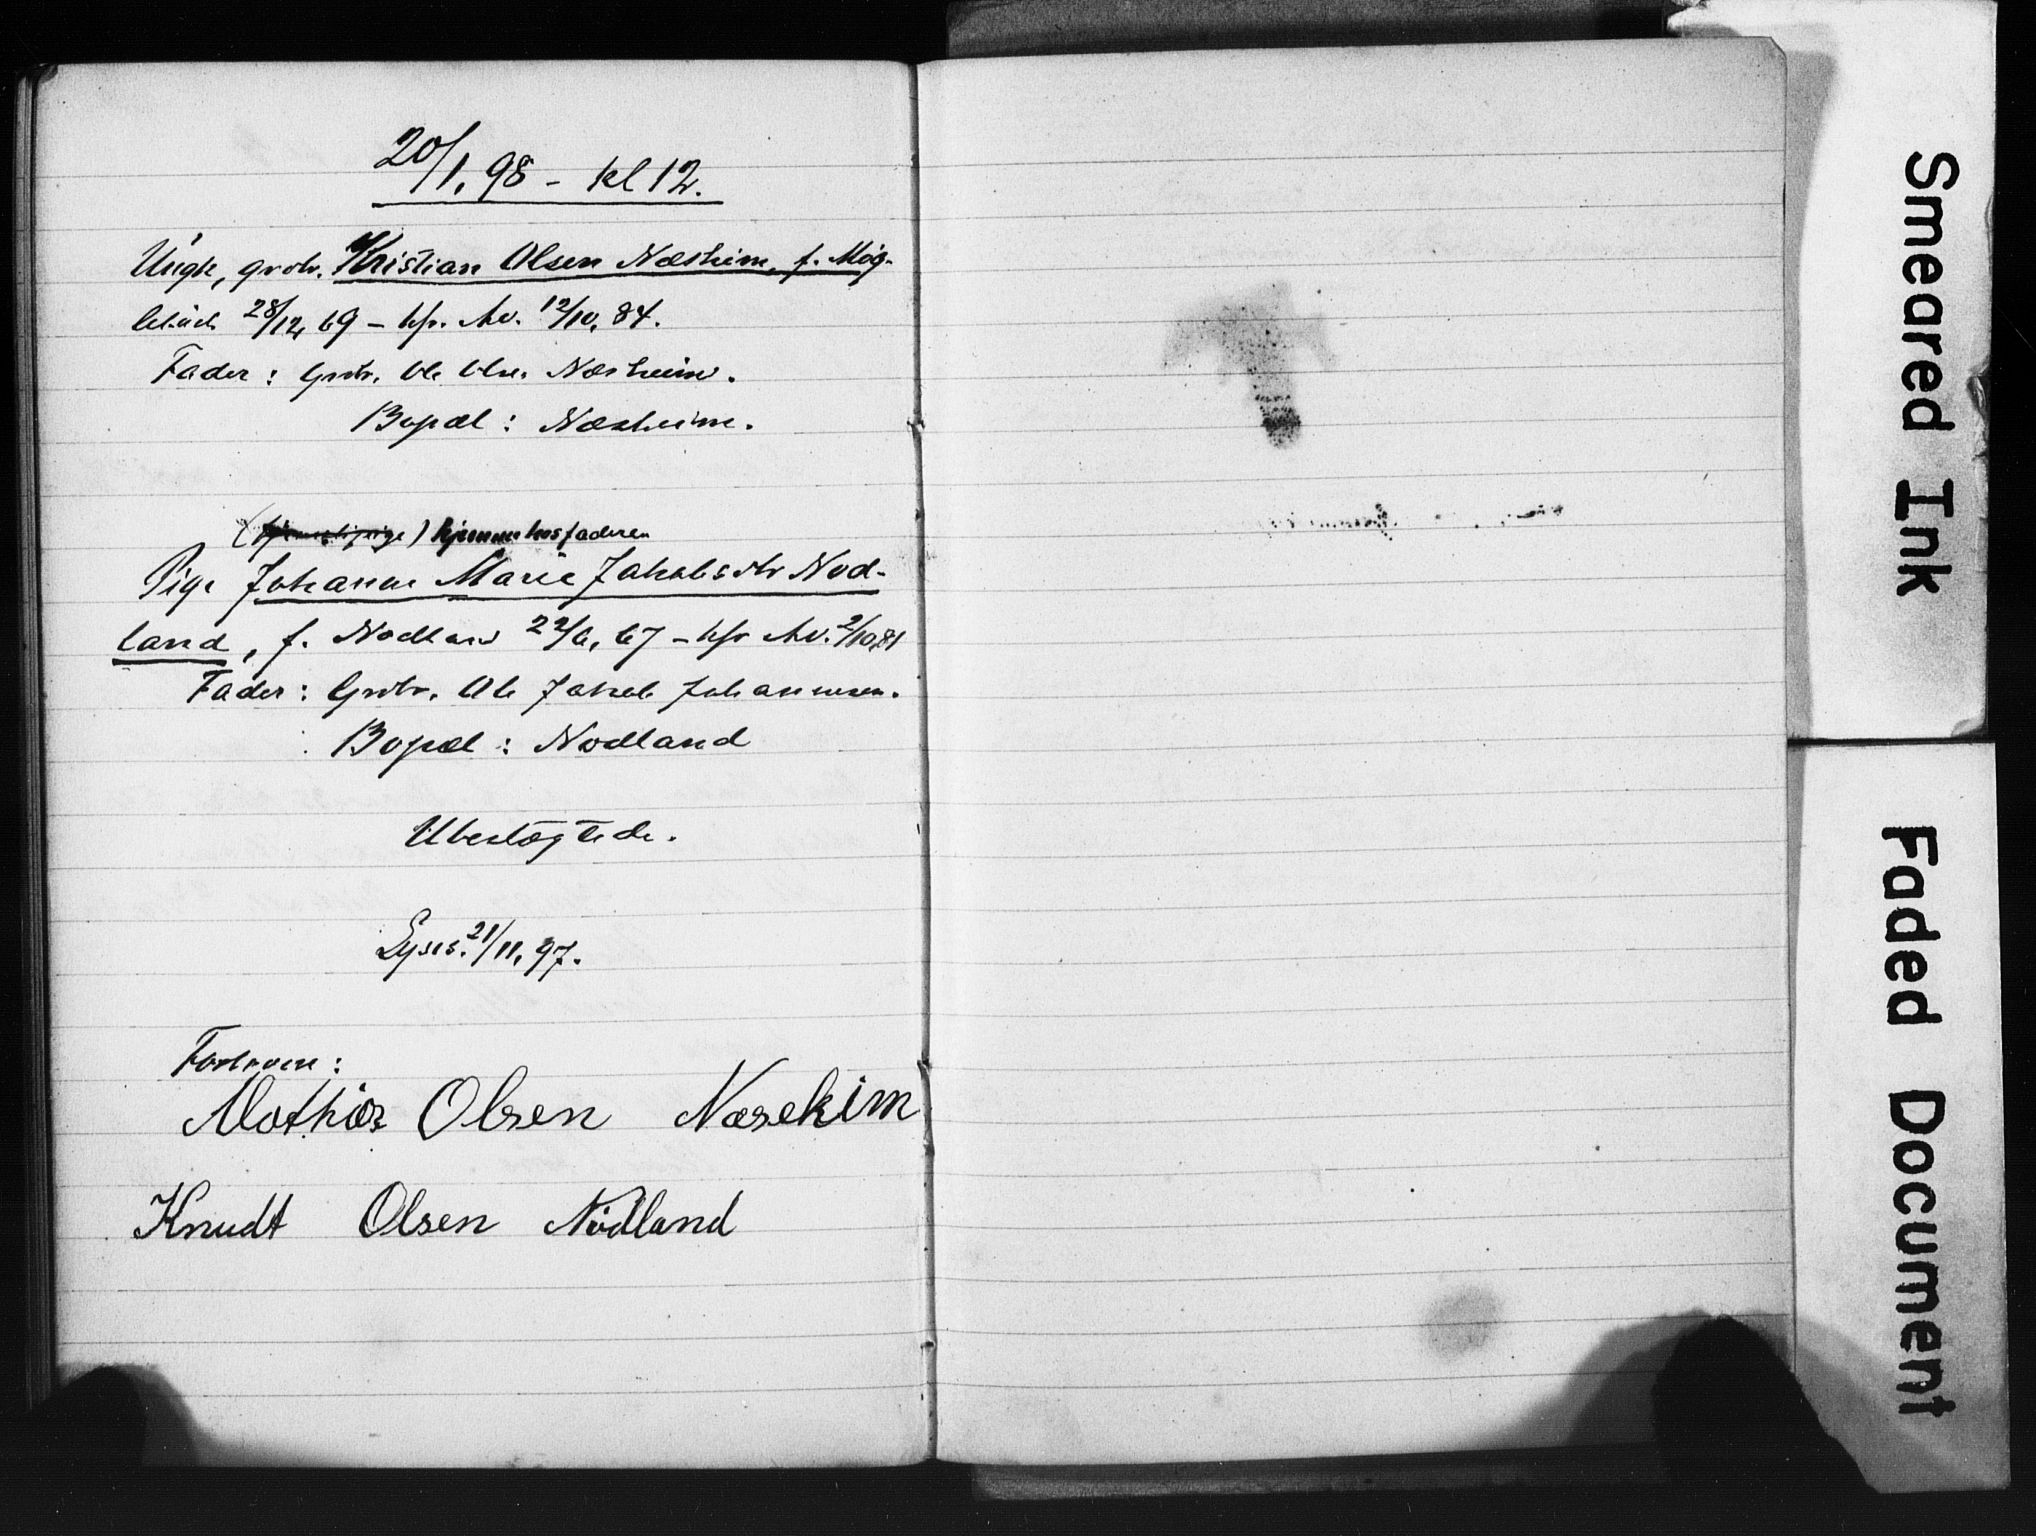 20/1, 98 - kl 12.
Ungk, grdbr. Kristian Olsen Næsheim, f. Møg-
28/12, 69 - kfr. Av. 12/10, 84.
Fader: Grdbr. Ole Olsen Næsheim.
Bopæl: Næsheim.
hjemme hos faderen
Pige Johanne Marie Jakobsdtr Nod-
land, f. Nodland 22/6, 67 - kfr Av. 2/10, 81
Fader: Grdbr. Ole Jakob Johannesen.
Bopæl: Nodland
Ubeslægtede.
Lyses. 21/11, 97.
Forlovere:
Mathias Olsen Næsekim
Knudt Olsen Nodland
Smeared Ink
Faded Document